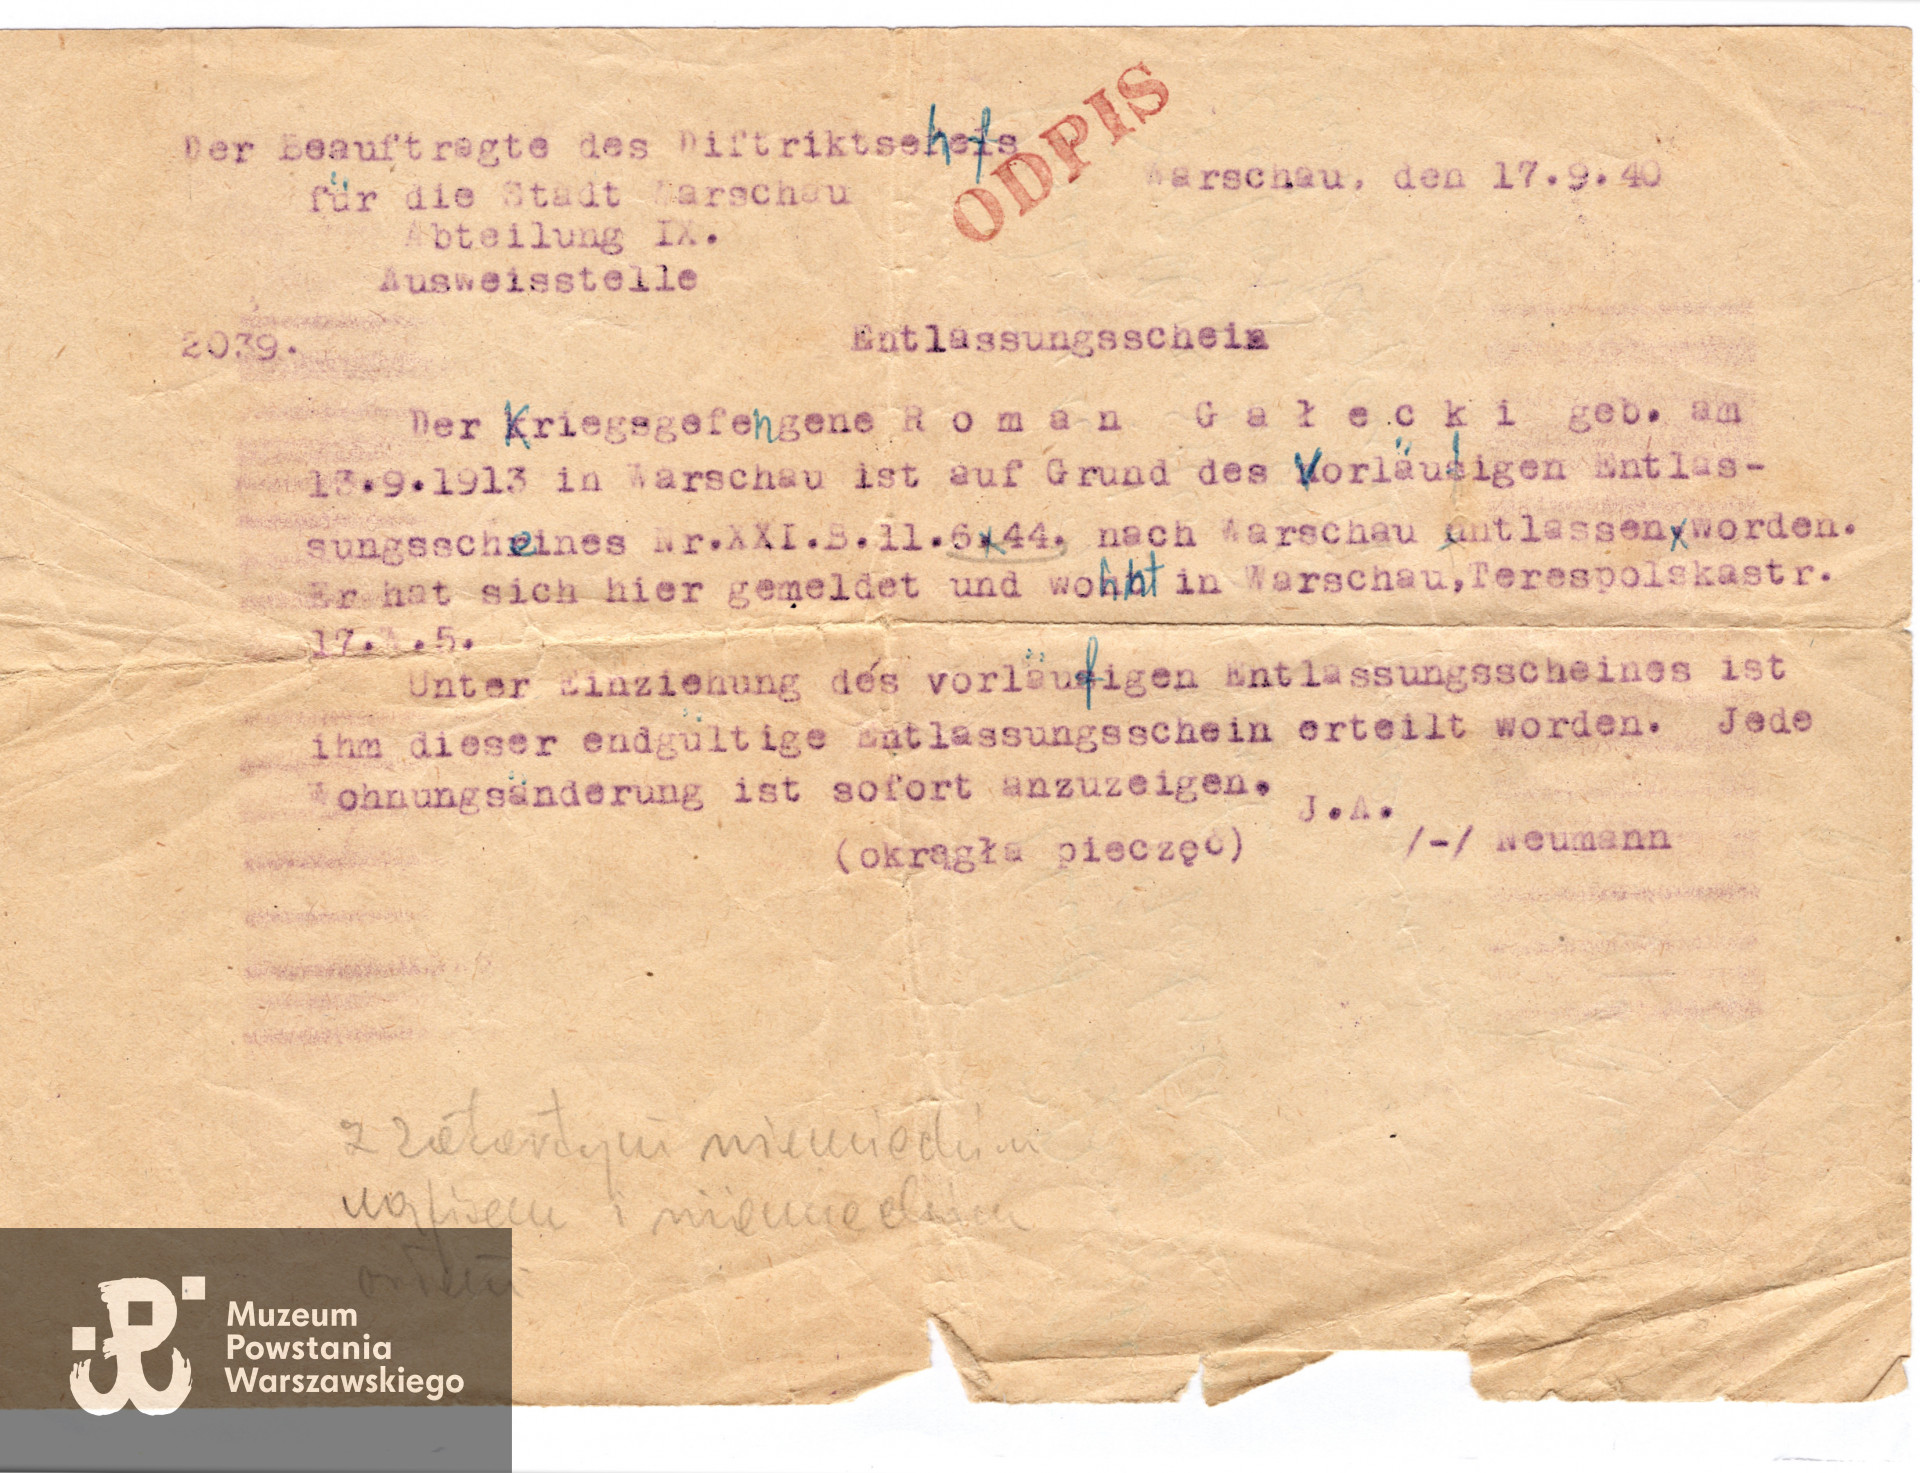 ODPIS
Der Beauftragte des Diftriktschefs
für die Stadt Warschau
Abteilung IX.
Ausweisstelle
Warschau, den 17.9.40
2039.
Entlassungsschein
Der Kriegsgefengene R o m a n G a ł e c k i geb. am
13.9.1913 in Warschau ist auf Grund des Vorläufigen Entlas-
sungsscheines Nr.XXI.B.11.6x44. nach Warschau entlassen worden.
Er hat sich hier gemeldet und wohnt in Warschau,Terespolskastr.
17. .5.
Unter Einziehung des vorläufigen Entlassungsscheines ist
ihm dieser endgültige Entlassungsschein erteilt worden. Jede
Wohnungsänderung ist sofort anzuzeigen.
J.A.
(okrągła pieczęć) /-/ Neumann
z zatartym niemieckim
napisem i niemieckim
Muzeum
Powstania
Warszawskiego